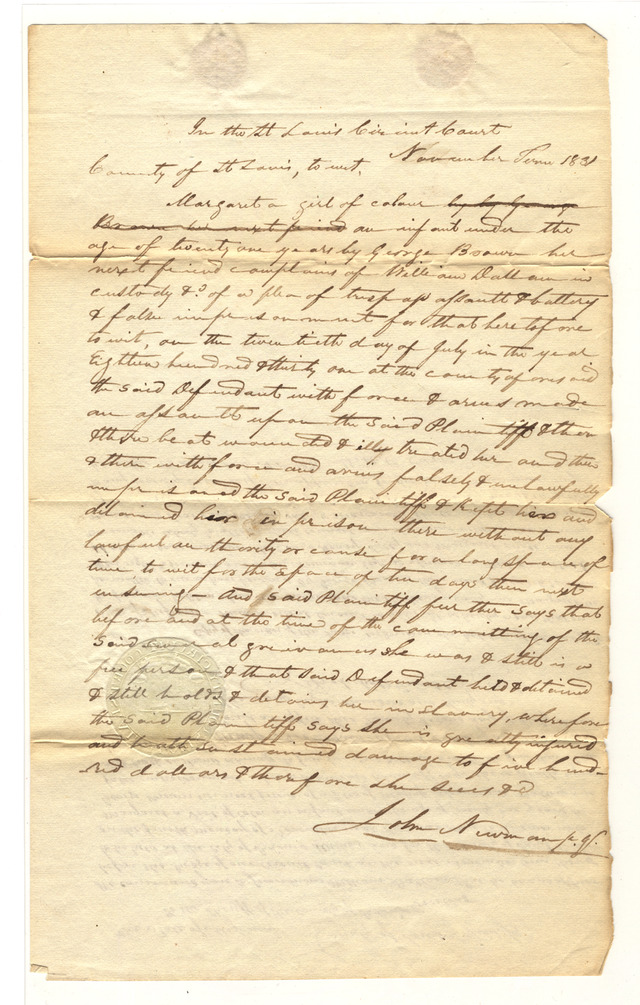 In the St Louis Circuit Court
November Term 1831
County of St Louis, to wit.
Margaret a girl of colour by by George
Brown her next friend an infant under the
age of twenty one years by George Brown her
next friend complains of William Dallam in
custody &c of a plea of trespass assault & battery
& false imprisonment for that heretofore
to wit, on the twentieth day of July in the year
Eighteen hundred & thirty one at the county aforesaid
the said Defendant with force & arms made
an assault upon the said Plaintiff & then
& there beat wounded & illy treated her and then
& there with force and arms falsely & unlawfully
imprisoned the said Plaintiff & kept her and
detained her in prison there without any
lawful authority or cause for a long space of
time to wit for the space of ten days then next
ensuing - And said Plaintiff further says that
before and at the time of the committing of the
said several grievances she was & still is a
free person & that said Defendant held & detained
& still holds & detains her in slavery, wherefore
the said Plaintiff says she is greatly injured
and hath sustained damage to five hund-
red dollars & therefore she sues &c
John Newman p. q.